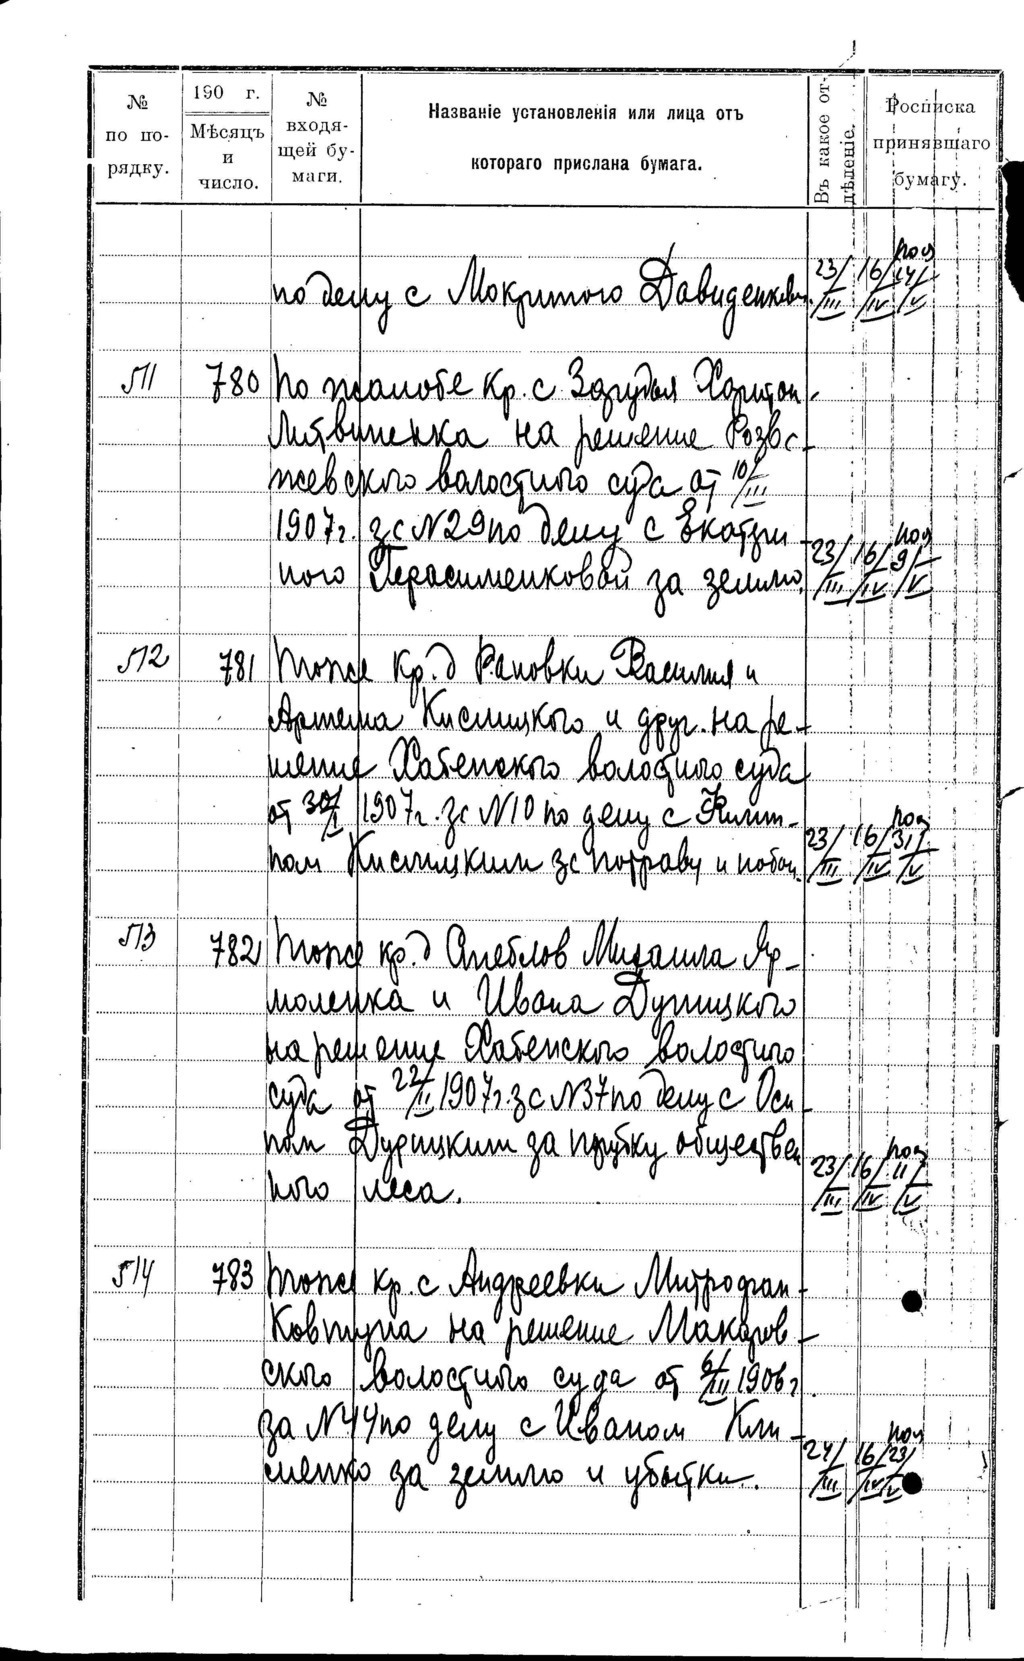 № по порядку.
190 г. Мѣсяцъ и число.
№ входящей бумаги.
Названіе установленія или лица отъ котораго прислана бумага.
Въ какое отдѣленіе.
Росписка принявшаго бумагу.
по делу с Мокритого 23/III 16/IV 14/V
511 780 по жалобе кр. с. Харитон
Литвиненка на решение Розва-
жевского волостного суда от 10/III
1907 г. за N 29 по делу с Екатери-
ного Герасименковой за землю. 23/III 16/IV 9/V
512 781 тоже кр. д Рановки Василия и
Артема Кислицкого и друг. на ре-
шение Хабенского волостного суда
от 30/I 1907 г. за N 10 по делу с Филип-
пом Кислицким за потраву и побои. 23/III 16/IV 31/V
513 782 тоже кр. д Михаила Яр-
моленка и Ивана
на решение Хабенского волостного
суда от 22/II 1907 г. за N 37 по делу с Оси-
пом за обществен
ного леса. 23/III 16/IV 11/V
514 783 тоже кр. с Андреевки Митрофан
Ковтуна на решение Макаров-
ского волостного суда от 6/III 1906 г.
за N 44 по делу с Иваном Кли-
менко за землю и убытки. 24/III 16/IV 23/V